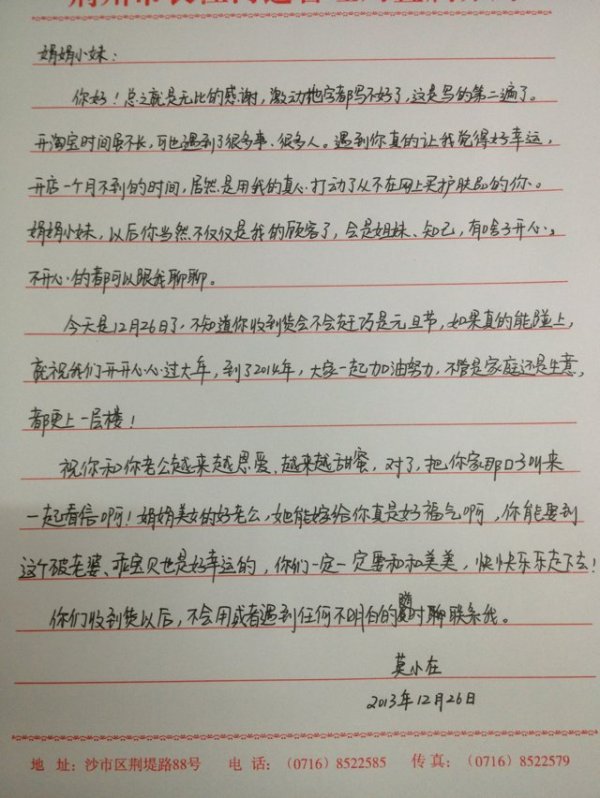 娟娟小妹：
你好！总之就是无比的感谢，激动地字都写不好了，这是写的第二遍了。
开淘宝时间虽不长，可也遇到了很多事、很多人。遇到你真的让我觉得好幸运，
开店一个月不到的时间，居然是用我的真心打动了从不在网上买护肤品的你。
娟娟小妹，以后你当然不仅仅是我的顾客了，会是姐妹、知己，有啥子开心、
不开心的都可以跟我聊聊。
今天是12月26日了，不知道你收到货会不会赶巧是元旦节，如果真的能碰上，
就祝我们开开心心过大年，到了2014年，大家一起加油努力，不管是家庭还是生意，
都更上一层楼！
祝你和你老公越来越恩爱、越来越甜蜜，对了，把你家那口子叫来
一起看信啊！娟娟美女的好老公，她能嫁给你真是好福气啊，你能娶到
这个破老婆、乖宝贝也是好幸运的，你们一定一定要和和美美，快快乐乐走下去！
你们收到货以后，不会用或者遇到任何不明白的随时聊联系我。
莫小在
2013年12月26日
地 址：沙市区荆堤路88号 电 话：（0716）8522585 传 真：（0716）8522579